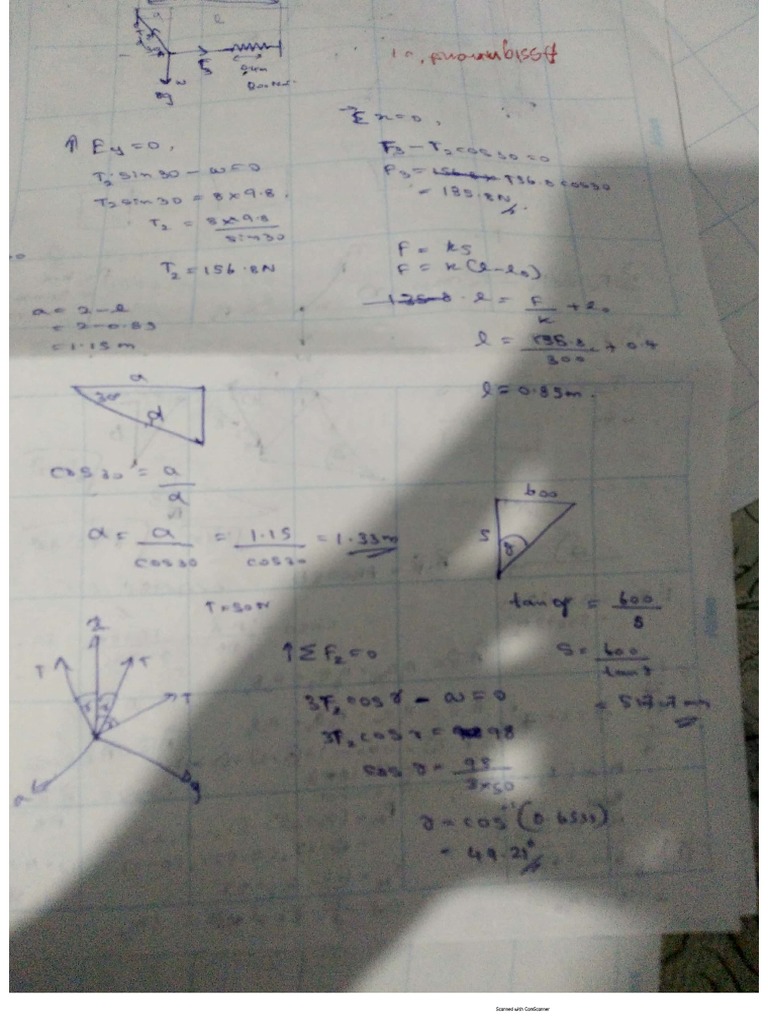 Assignment, 01
a
l
F3
0.4m
w
8g
↑ Σy = 0,
T2 sin 30 - w = 0
T2 sin 30 = 8 × 9.8.
T2 = 8 × 9.8 / sin 30
T2 = 156.8N
→ Σx = 0,
F3 - T2 cos 30 = 0
= 135.8N
F = ks
F = k(l - l0)
l = F / k + l0
l = 135.8 / 300 + 0.4
l = 0.85m.
a = 2 - l
= 2 - 0.85
= 1.15m
a
30°
d
cos 30 = a / d
d = a / cos 30 = 1.15 / cos 30 = 1.33m
600
S
γ
tan γ = 600 / S
S = 600 / tan γ
= 517.7 mm
T = 50N
z
T
T
T
γ
γ
γ
↑ ΣFz = 0
3Tz cos γ - w = 0
3Tz cos γ = 98
cos γ = 98 / 3×50
γ = cos⁻¹ (0.6533)
= 49.21°
Scanned with CamScanner